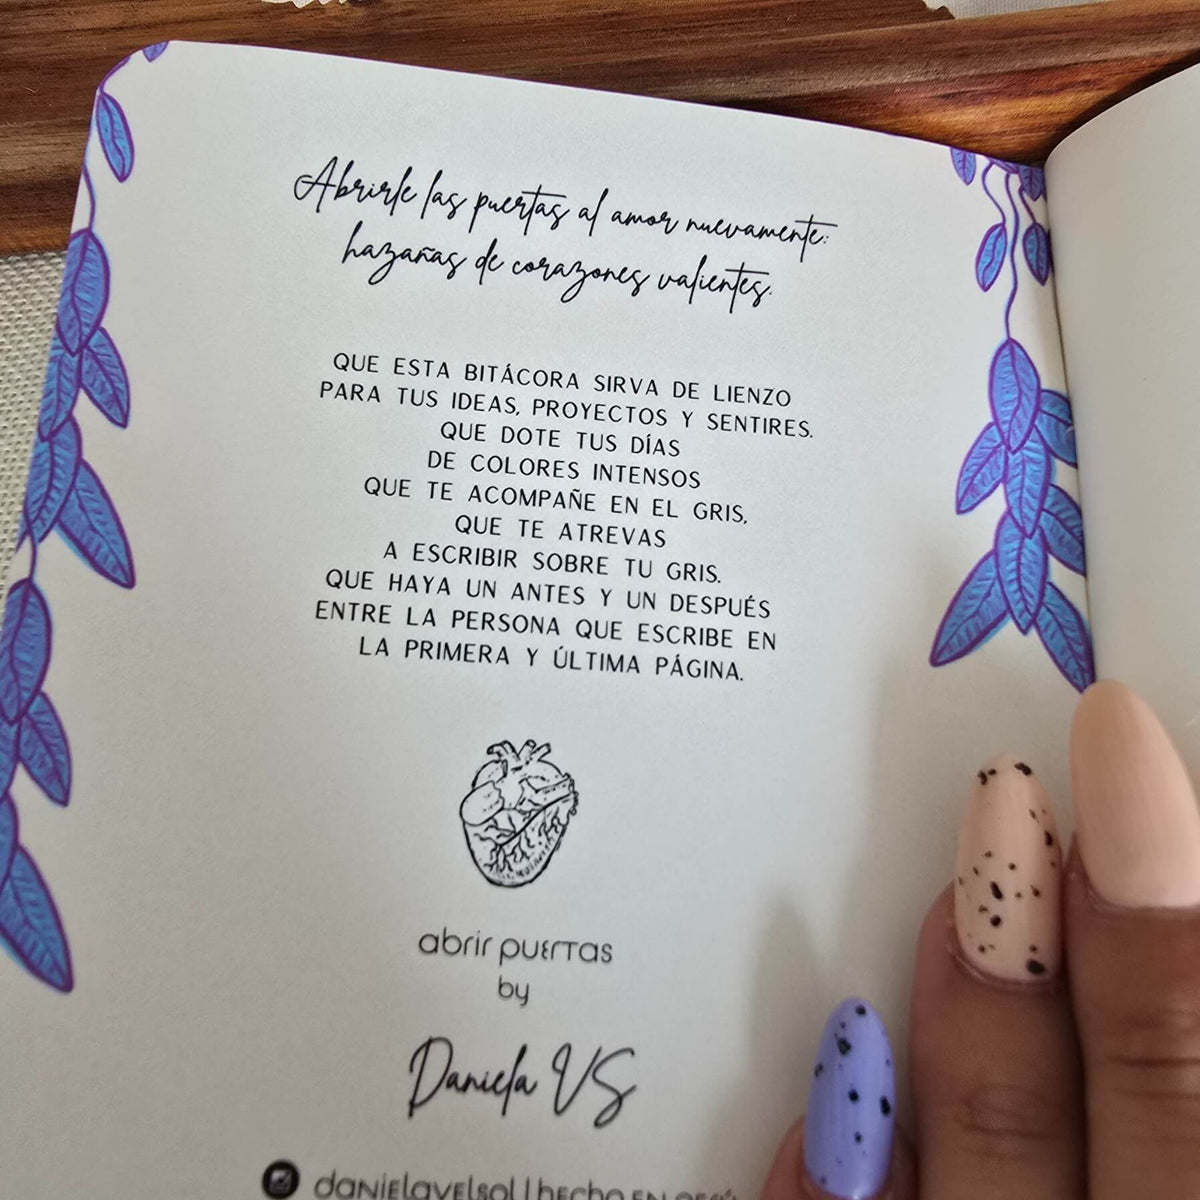 Abrirle las puertas al amor nuevamente:
hazañas de corazones valientes.
QUE ESTA BITÁCORA SIRVA DE LIENZO
PARA TUS IDEAS, PROYECTOS Y SENTIRES.
QUE DOTE TUS DÍAS
DE COLORES INTENSOS
QUE TE ACOMPAÑE EN EL GRIS,
QUE TE ATREVAS
A ESCRIBIR SOBRE TU GRIS.
QUE HAYA UN ANTES Y UN DESPUÉS
ENTRE LA PERSONA QUE ESCRIBE EN
LA PRIMERA Y ÚLTIMA PÁGINA.
abrir puertas
by
Daniela VS
danielavelsol | hecho en